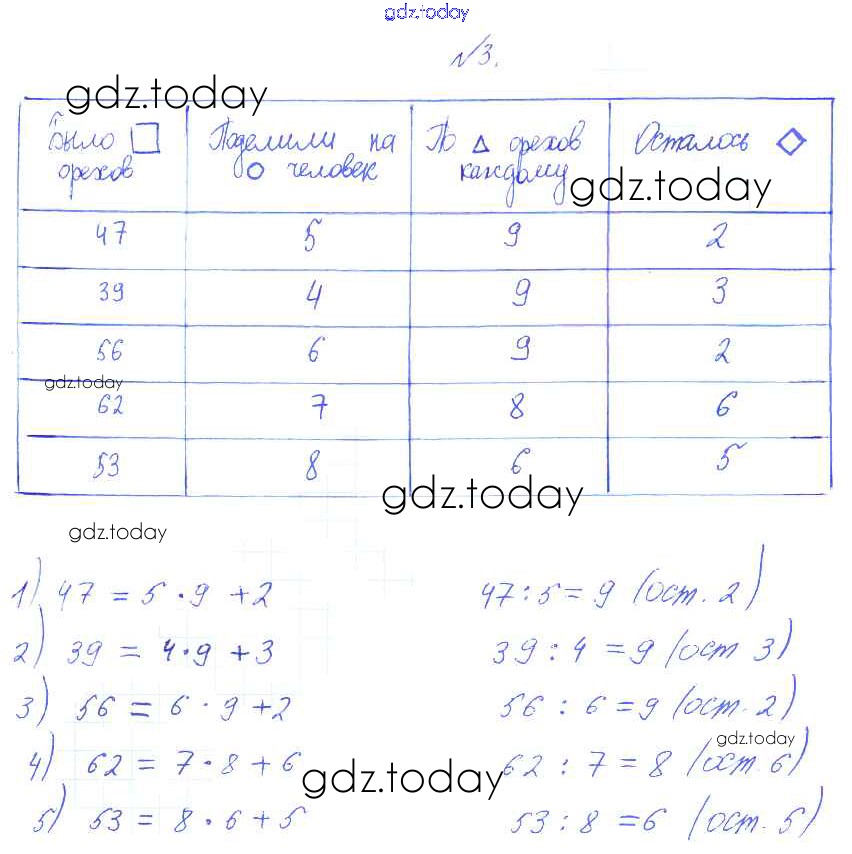 gdz.today
№3.
gdz.today
Было □ орехов | Поделили на ○ человек | По △ орехов каждому | Осталось ◇
gdz.today
47 | 5 | 9 | 2
39 | 4 | 9 | 3
56 | 6 | 9 | 2
gdz.today
62 | 7 | 8 | 6
53 | 8 | 6 | 5
gdz.today
gdz.today
1) 47 = 5 · 9 + 2    47 : 5 = 9 (ост. 2)
2) 39 = 4 · 9 + 3    39 : 4 = 9 (ост 3)
3) 56 = 6 · 9 + 2    56 : 6 = 9 (ост. 2)
gdz.today
4) 62 = 7 · 8 + 6    62 : 7 = 8 (ост. 6)
gdz.today
5) 53 = 8 · 6 + 5    53 : 8 = 6 (ост. 5)